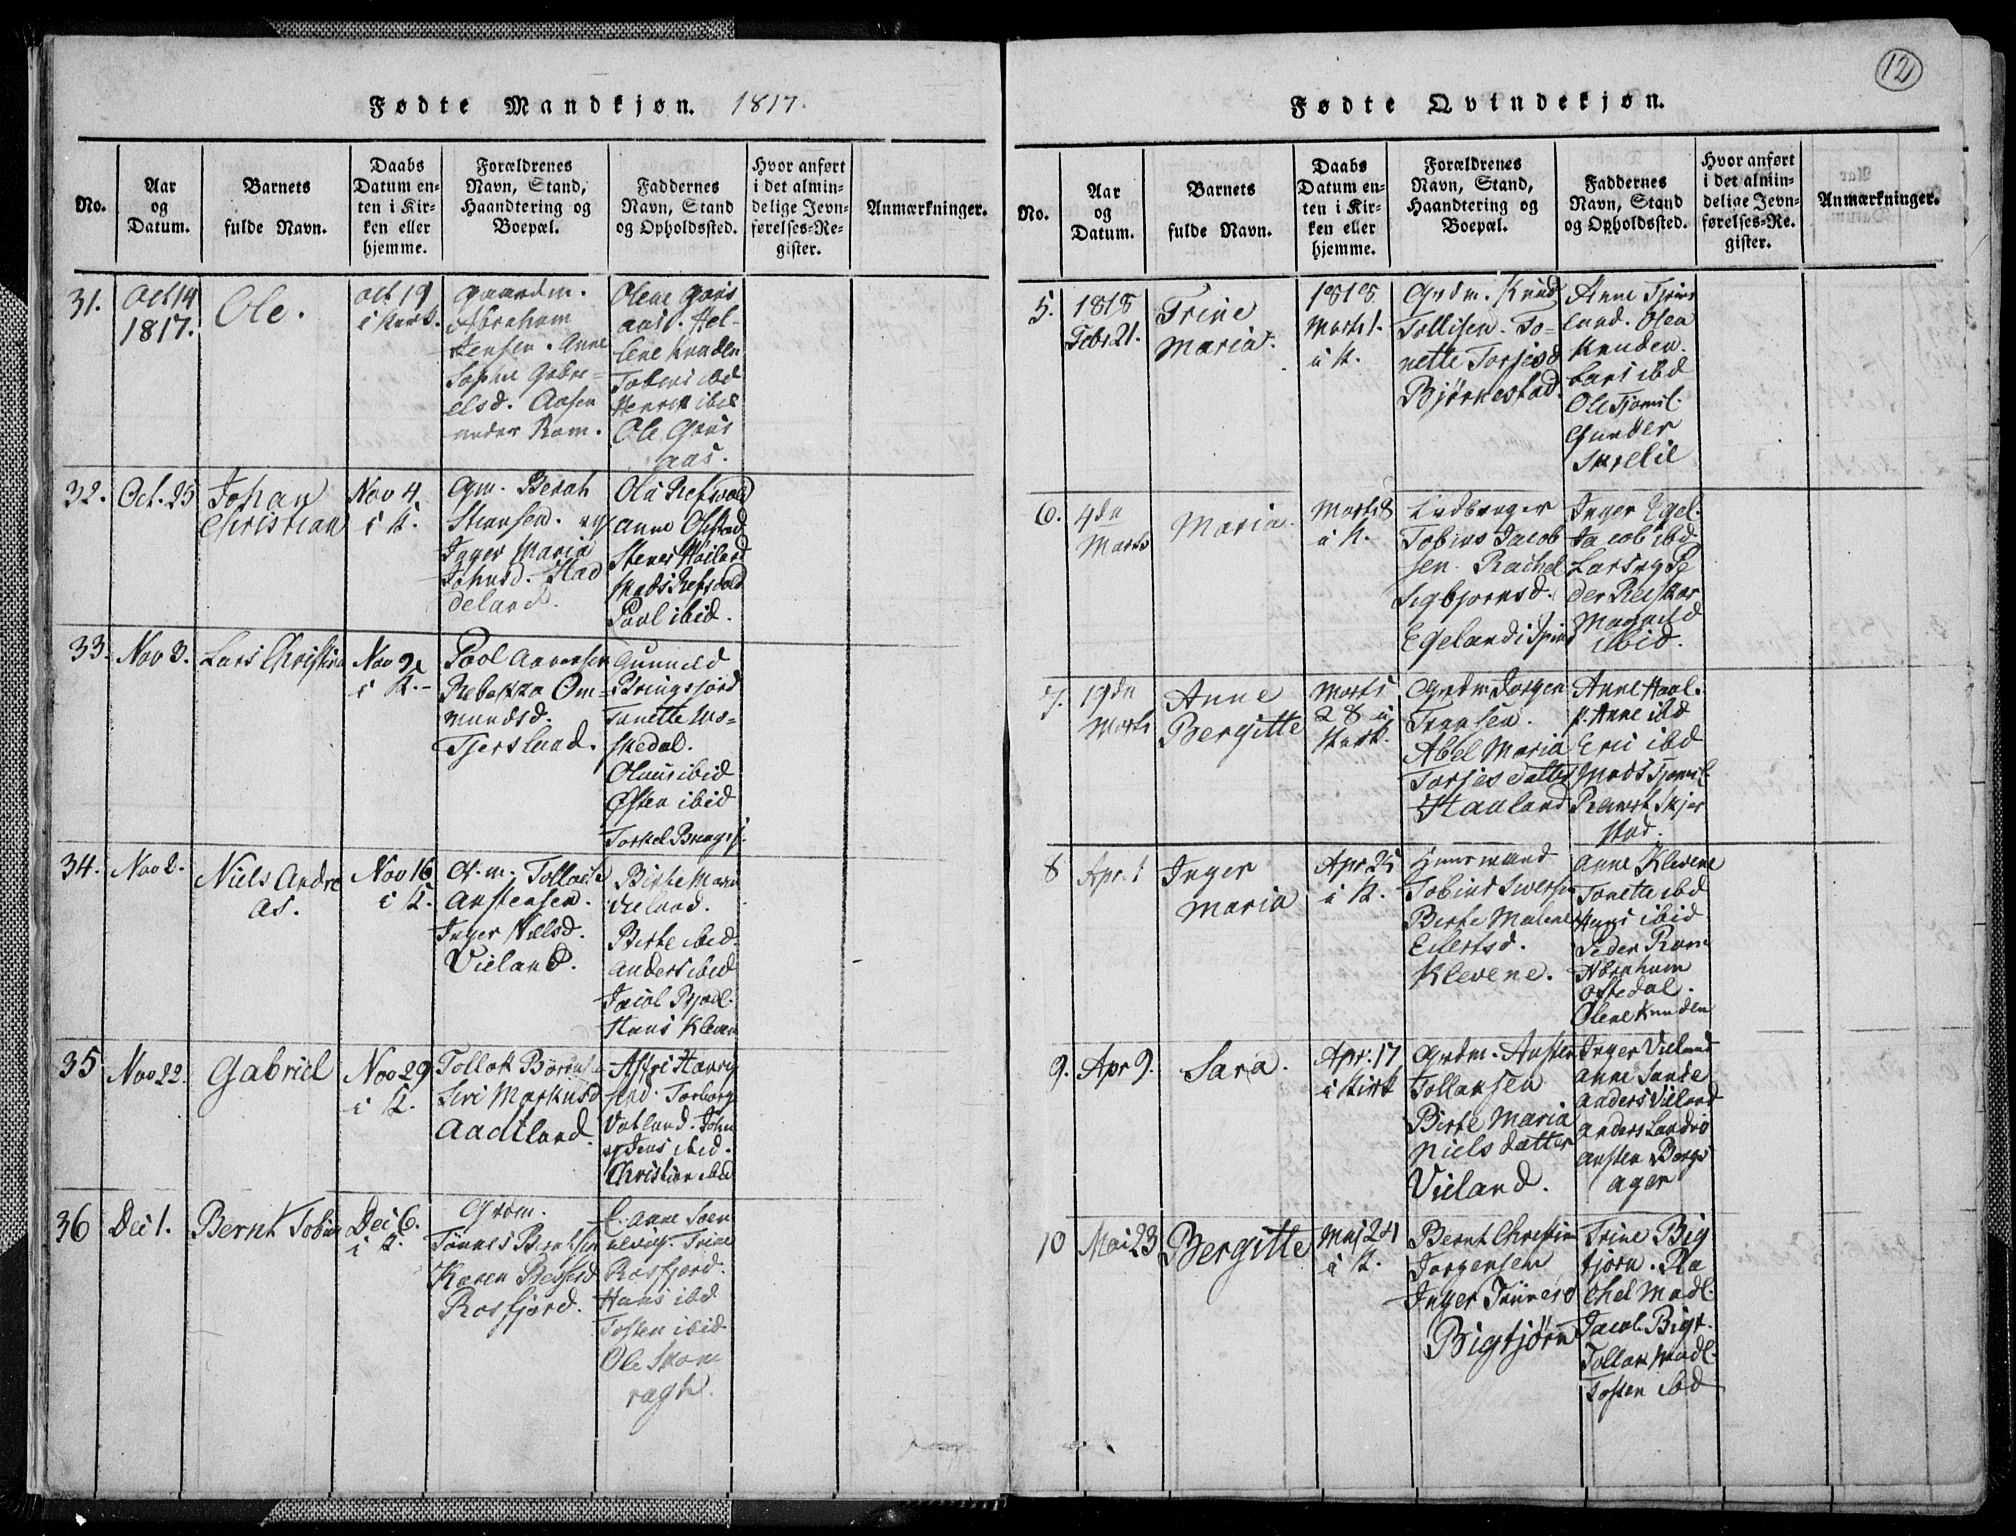 12
Fødte Mandkjøn. 1817.
No.
Aar
og
Datum.
Barnets
fulde Navn.
Daabs
Datum en-
ten i Kir-
ken eller
hjemme.
Forældrenes
Navn, Stand,
Haandtering og
Boepæl.
Faddernes
Navn, Stand
og Opholdssted.
Hvor anført
i det almin-
delige Jevn-
førelses-Re-
gister.
Anmærkninger.
31.
Oct 14
1817.
Ole.
Oct 19
i Kirk.
Gaardm.
Abraham
Jensen. Anne
Sophie Gabri-
elsd. Aasen
under Rom.
Olene
Hel-
lene Knuden
Tobias ibd
Henrik ibd
Ole
aas.
32.
Oct. 25
Johan
Christian
Nov 4.
i K.
Gm. Berat
Stiansen. og
Inger Maria
Johnsd. Had
deland.
Ola Refsvold
Anne Ofstad
Mads Refsvold
Povl ibid.
33.
Nov 3.
Lars Christian
Nov 9
i K.
Povl Aanensen
Rebekka Om-
mundsd.
Tjersland.
Gunneld
Bringsfjord
Tonette Mo-
skedal.
Olaus ibid
Østen ibid
Torkel
34.
Nov 2.
Niels Andre
as.
Nov 16
i K.
G.m. Tollack
Anstensen.
Inger Nielsd.
Vieland.
Birte Maria
Vieland.
Birte ibid.
Anders ibid
Jacob
Hans Kleven
35
Nov 22.
Gabriel
Nov 29
i K.
Tollak
Siri Markusd
Aadtland.
Astri
Torborg
Vatland. John
og Jens ibid.
Christian ibid
36
Dec 1.
Bernt Tobias
Dec 6.
i K.
Grdm.
Tønnes Berntsen
Karen
Rosfjord.
E. Anne
Trine
Rosfjord.
Hans ibd
Tosten ibid
Ole Skom
ragh.
Fødte Qvindekjøn.
No.
Aar
og
Datum.
Barnets
fulde Navn.
Daabs
Datum en-
ten i Kir-
ken eller
hjemme.
Forældrenes
Navn, Stand,
Haandtering og
Boepæl.
Faddernes
Navn, Stand
og Opholdssted.
Hvor anført
i det almin-
delige Jevn-
førelses-Re-
gister.
Anmærkninger.
5.
1818
Febr 21.
Trine
Maria.
1818
Marts 1.
i K.
Grdm. Knud
Tollisen. To-
nette Torjesd
Bjørnestad.
Anne Tjøms
land. Osea
Knuden.
Lars ibd
Ole Tjomsl.
Gunder
Skrelie
6.
4de
Marts
Maria.
Marts 8
i K.
Ledbruger
Tobias Jacob
sen. Rachel
Sigbjørnsd.
Egeland i Spind
Inger Egel.
Jacob ibd
Lars og Pe
der
Magnild
ibid.
7.
19de
Marts
Anne
Bergitte
Marts
28 i
Kirk.
Grdm Jørgen
Abel Maria
Torjesdatter
Hauland
Anne Haul.
p. Anne ibd
Eric ibd
Mads Tjomsl.
Skjer
stad.
8
Apr. 1
Inger
Maria
Apr. 25
i K.
Huusmand
Tobias Sivers
Birte Malene
Eilertsd.
Klevene.
Anne Klevene
Tonette ibd
Hans ibid
Peder Rom
Abraham
Ofstedal.
Olene Knuden
9.
Apr 9.
Sara.
Apr. 17
i Kirk
Grdm. Austen
Tollaksen
Birte Maria
Nielsdatter
Vieland.
Inger Vieland
Anne Sande
Anders Vieland
Anders
Austen Borgs
ager
10
Mai 23
Bergitte
Maj 24
i K.
Bernt Christian
Jørgensen
Inger Tønnesd
Bigtjørn
Trine Big
tjørn. Ra
chel Madl.
Jacob Bigt.
Tollak Madl.
Tosten ibd